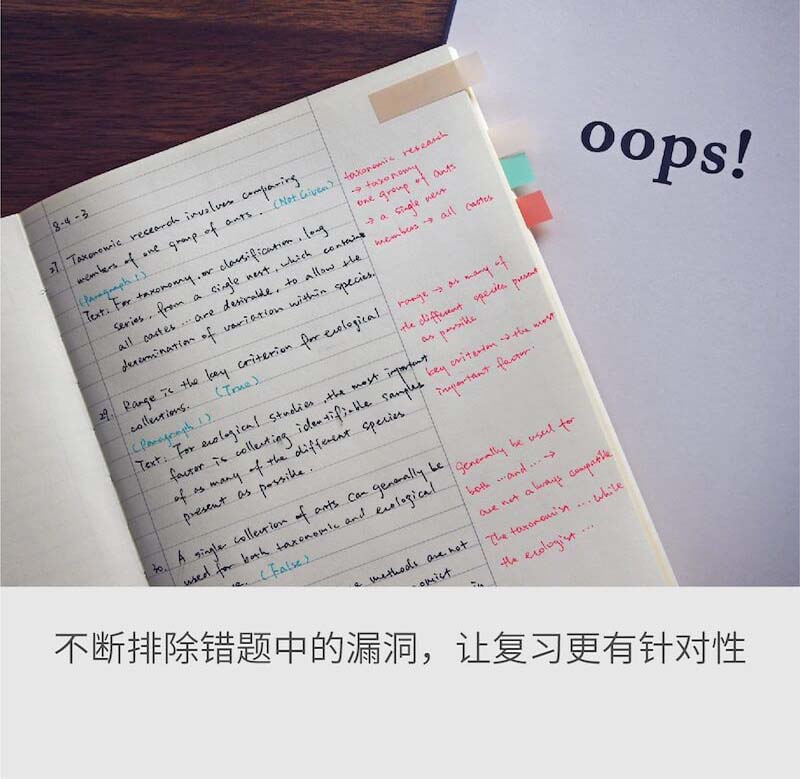 oops!
8-4-3
27. Taxonomic research involves comparing
members of one group of ants. (Not Given)
(Paragraph 1)
Text: For taxonomy, or classification, long
series, from a single nest, which contain
all castes ... are desirable, to allow the
determination of variation within species.
29. Range is the key criterion for ecological
collections. (True)
(Paragraph 1)
Text: For ecological studies, the most important
factor is collecting identifiable samples
of as many of the different species
present as possible.
30. A single collection of ants can generally be
used for both taxonomic and ecological
(False)
methods are not
taxonomic research
→ taxonomy
one group of ants
→ a single nest
members → all castes
range → as many of
the different species present
as possible
key criterion → the most
important factor.
Generally be used for
both ... and ... →
are not always compatible
The taxonomist .... while
the ecologist ....
不断排除错题中的漏洞，让复习更有针对性